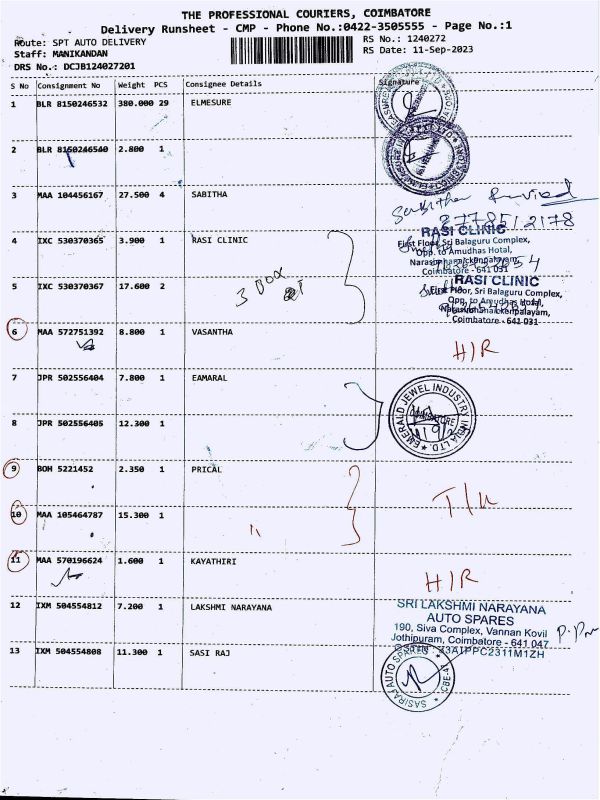 THE PROFESSIONAL COURIERS, COIMBATORE
Delivery Runsheet - CMP - Phone No.:0422-3505555 - Page No.:1
Route: SPT AUTO DELIVERY
RS No.: 1240272
Staff: MANIKANDAN
RS Date: 11-Sep-2023
DRS No.: DCJB124027201
S No Consignment No Weight PCS Consignee Details Signature
1 BLR 8150246532 380.000 29 ELMESURE
2 BLR 8150246540 2.800 1
3 MAA 104456167 27.500 4 SABITHA
Sabitha
4 IXC 530370365 3.900 1 RASI CLINIC
RASI CLINIC
First Floor, Sri Balaguru Complex,
Opp. to Amudhas Hotal,
Narasimhanaickenpalayam,
Coimbatore - 641 031
3 BOX
5 IXC 530370367 17.600 2
RASI CLINIC
First Floor, Sri Balaguru Complex,
Opp. to Amudhas Hotal,
Narasimhanaickenpalayam,
Coimbatore - 641 031
6 MAA 572751392 8.800 1 VASANTHA
H/R
7 JPR 502556404 7.800 1 EAMARAL
EMERALD JEWEL INDUSTRY INDIA LTD.
COIMBATORE
8 JPR 502556405 12.300 1
9 BOH 5221452 2.350 1 PRICAL
10 MAA 105464787 15.300 1
11 MAA 570196624 1.600 1 KAYATHIRI
H/R
12 IXM 504554812 7.200 1 LAKSHMI NARAYANA
SRI LAKSHMI NARAYANA
AUTO SPARES
190, Siva Complex, Vannan Kovil
Jothipuram, Coimbatore - 641 047
13 IXM 504554808 11.300 1 SASI RAJ
SASIRAJ AUTO SPARES